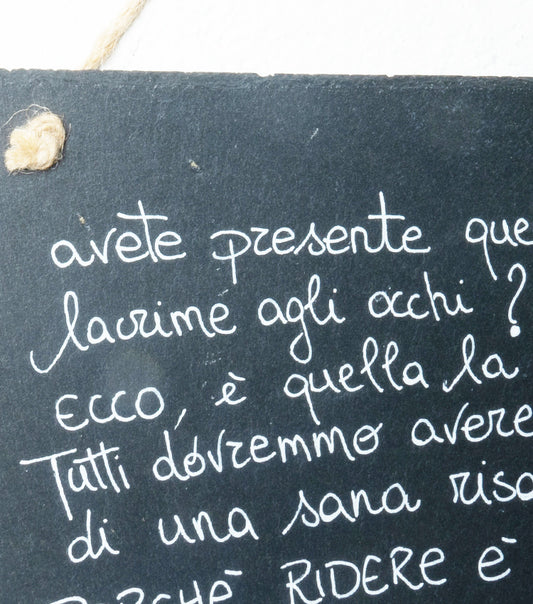 avete presente que
lacrime agli occhi ?
ECCO, è quella la
Tutti dovremmo avere
di una sana risa
PERCHÈ RIDERE È